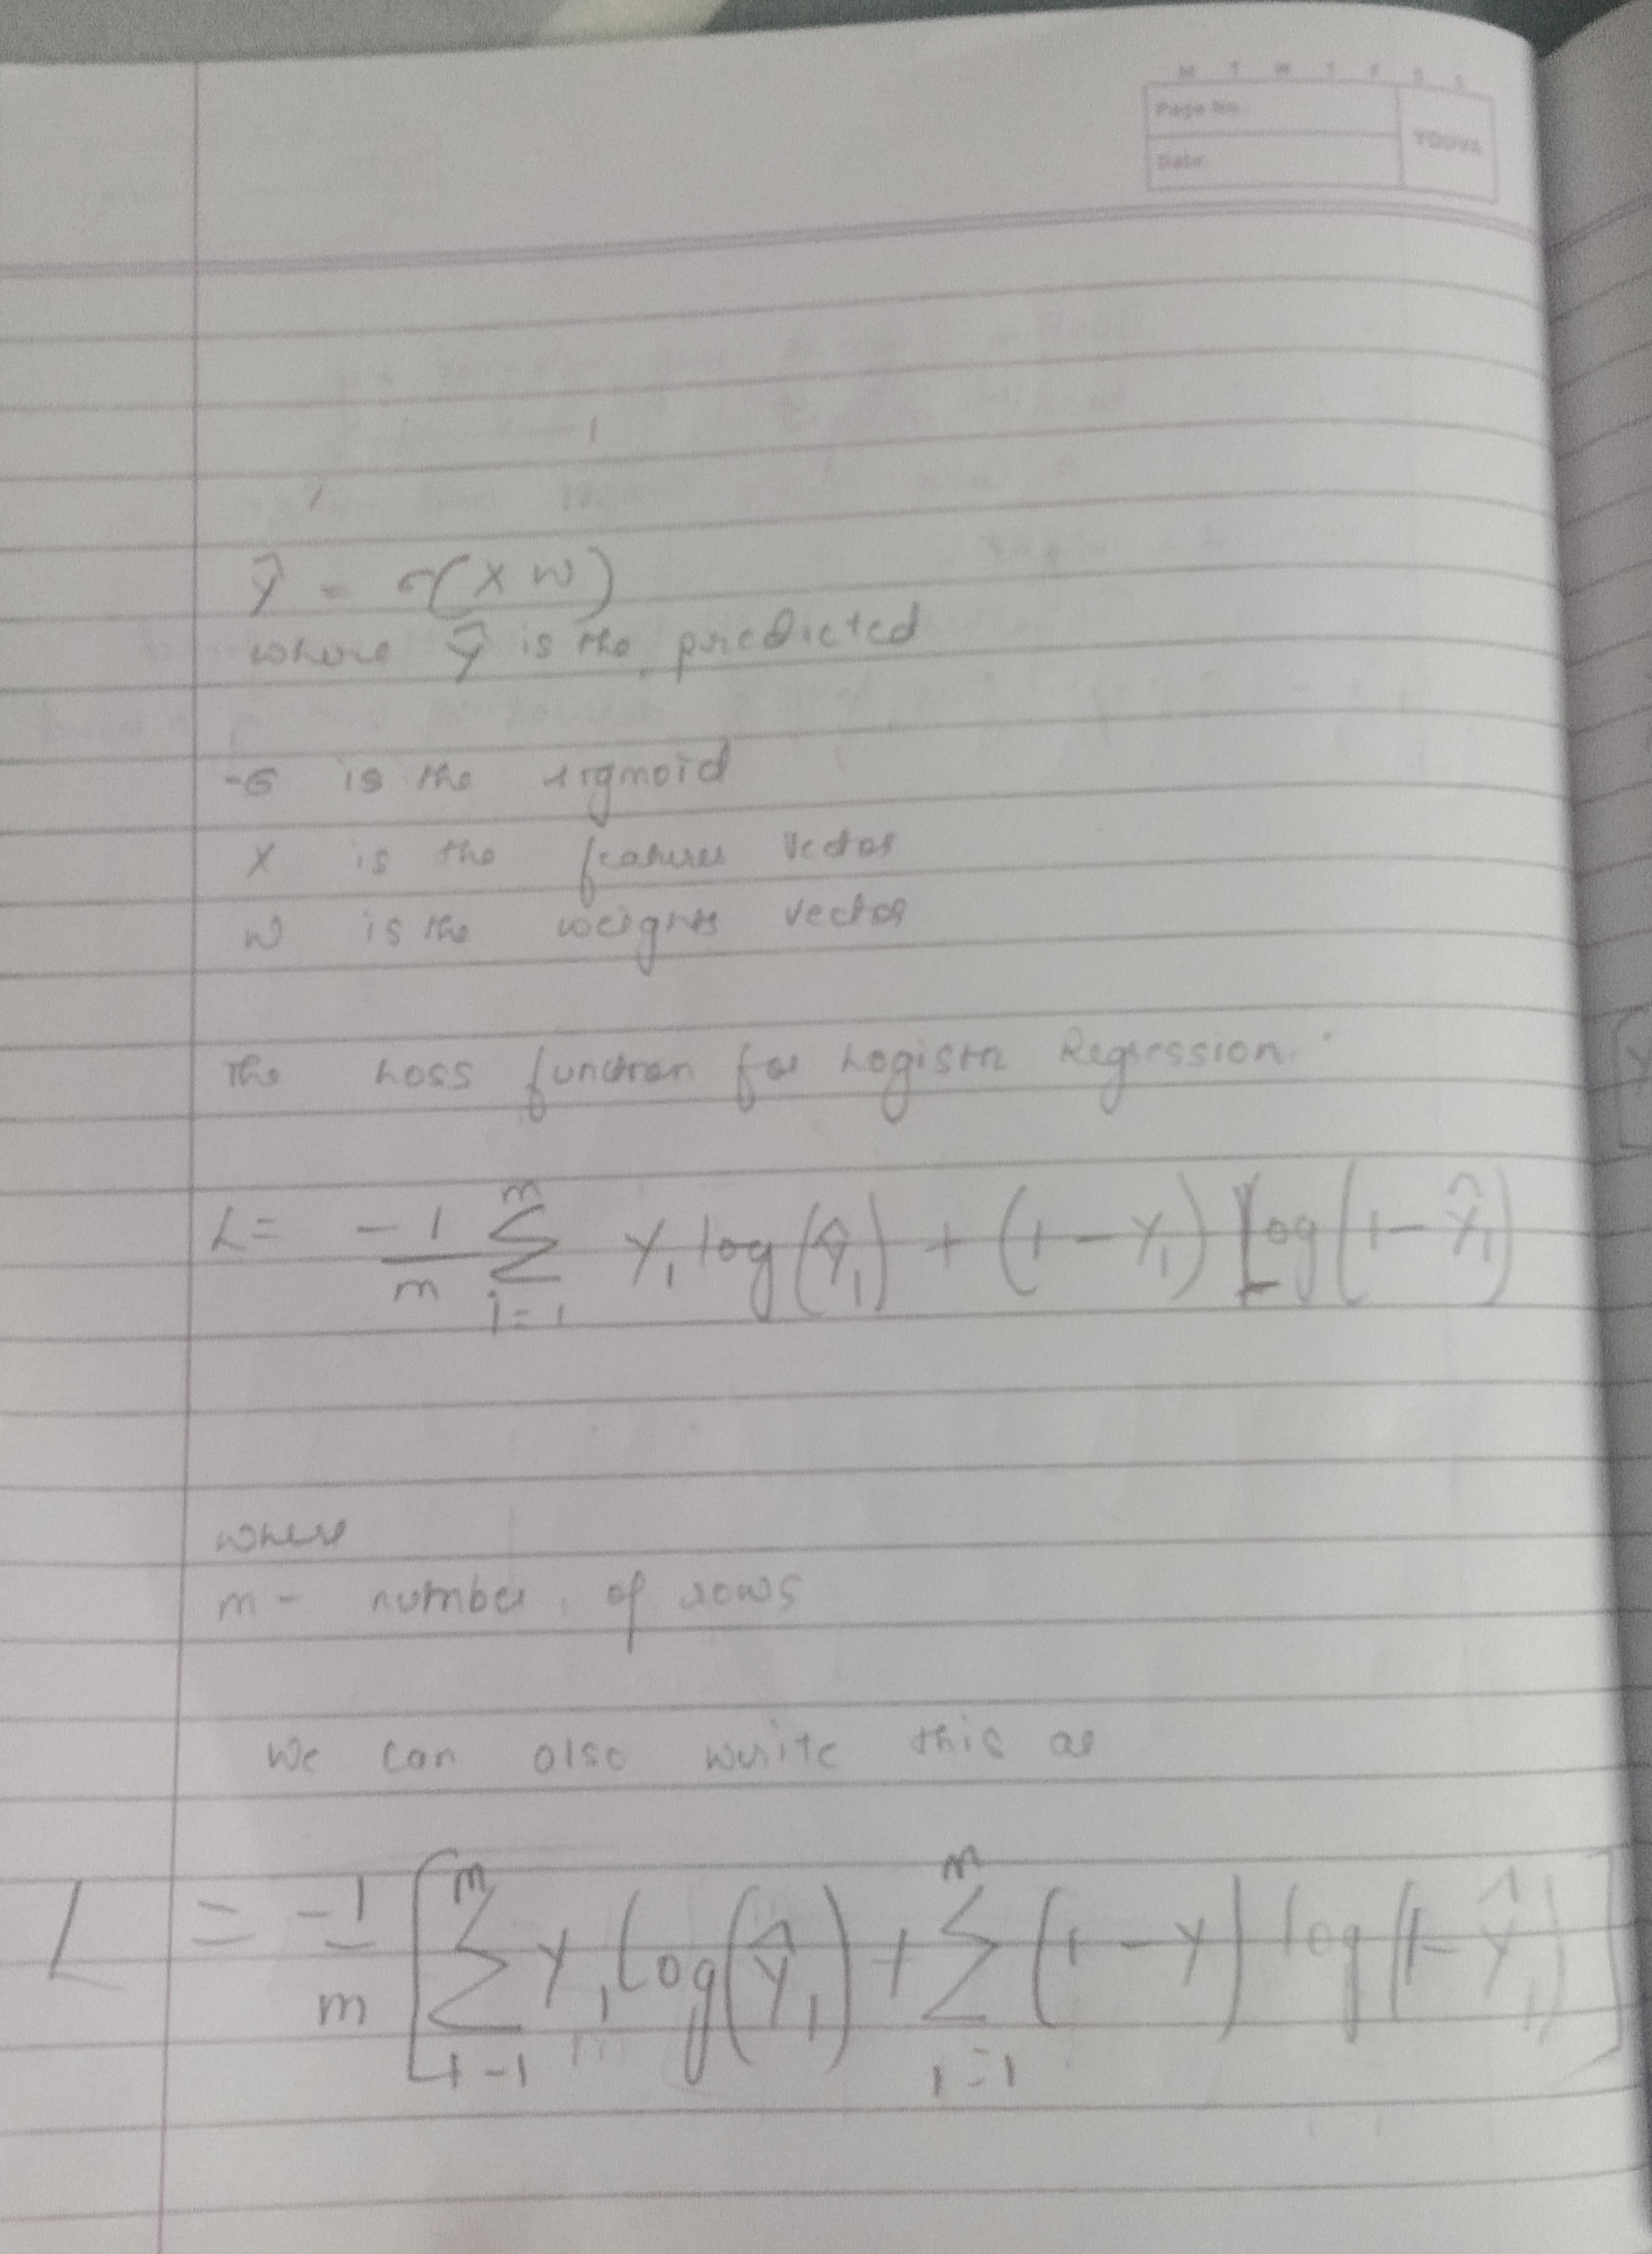 M T W T F S S
Page No.
YOUVA
Date
ŷ = σ(X W)
where ŷ is the predicted
-σ is the sigmoid
X is the features vector
W is the weights vector
The Loss function for Logistic Regression.
L = -1/m Σ_{i=1}^{m} Y_i log(Ŷ_i) + (1 - Y_i) Log(1 - Ŷ_i)
where
m - number of rows
We can also write this as
L = -1/m [Σ_{i=1}^{m} Y_i log(Ŷ_i) + Σ_{i=1}^{m} (1 - Y) log(1 - Ŷ_i)]